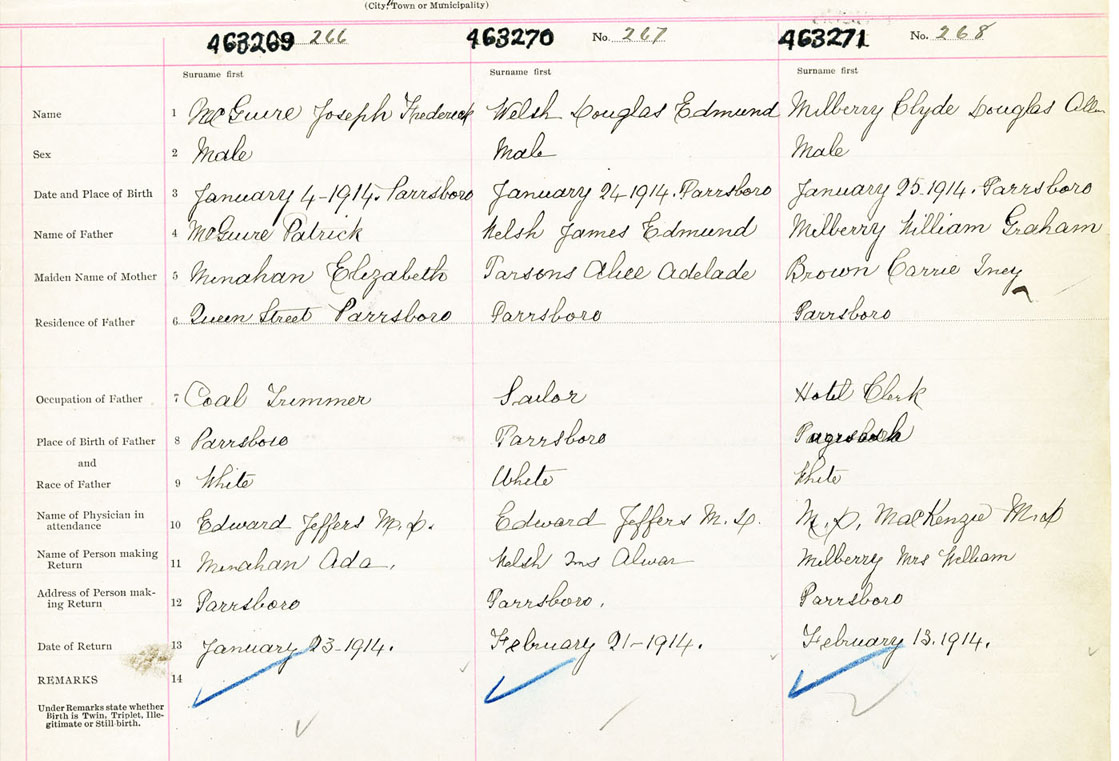 (City, Town or Municipality)
463269 266 463270 No. 267 463271 No. 268
Surname first Surname first Surname first
Name 1 McGuire Joseph Frederick Welsh Douglas Edmund Milberry Clyde Douglas Allen
Sex 2 Male Male Male
Date and Place of Birth 3 January 4-1914. Parrsboro January 24 1914. Parrsboro January 25.1914. Parrsboro
Name of Father 4 McGuire Patrick Welsh James Edmund Milberry William Graham
Maiden Name of Mother 5 Minahan Elizabeth Parsons Alice Adelade Brown Carrie Iney
Residence of Father 6 Queen Street Parrsboro Parrsboro Parrsboro
Occupation of Father 7 Coal Trimmer Sailor Hotel Clerk
Place of Birth of Father 8 Parrsboro Parrsboro
and
Race of Father 9 White White White
Name of Physician in
attendance 10 Edward Jeffers M.D. Edward Jeffers M.D. M.D. MacKenzie M.D
Name of Person making
Return 11 Minahan Ada. Welsh Mrs Milberry Mrs William
Address of Person mak-
ing Return 12 Parrsboro Parrsboro. Parrsboro
Date of Return 13 January 23-1914. February 21-1914. February 13.1914.
REMARKS 14
Under Remarks state whether
Birth is Twin, Triplet, Ille-
gitimate or Still-birth.